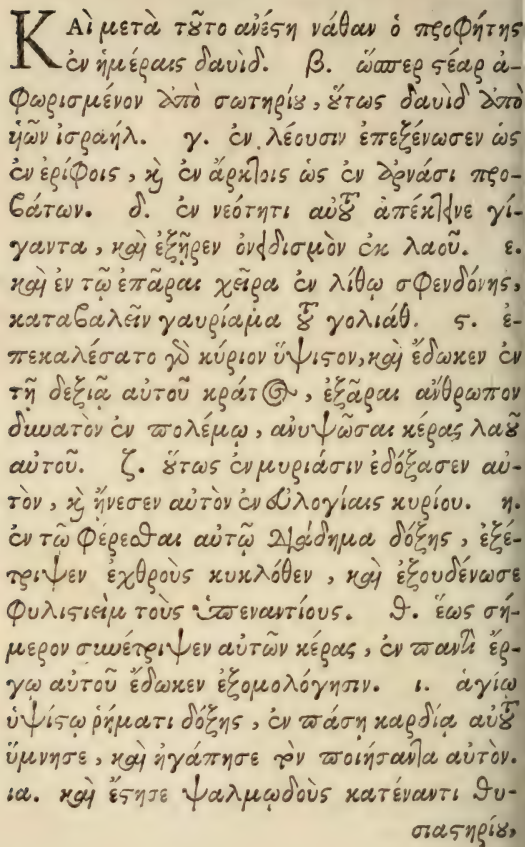 ΚΑὶ μετὰ τȣ͂το ανέϛη νάθαν ὁ προφήτης
ἐν ἡμέραις δαυὶδ. β. ὥσπερ ϛέαρ ἀ-
φωρισμένον ἀπὸ σωτηρίȣ, ȣ̔́τως δαυὶδ ἀπὸ
ἡῶν ἰσραήλ. γ. ἐν λέουσιν ἐπεξένωσεν ὡς
ἐν ἐρίφοις, ϗ ἐν ἄρκτοις ὡς ἐν ἀρνάσι προ-
βάτων. δ. ἐν νεότητι αὐτȣ͂ ἀπέκτεινε γί-
γαντα, καὶ ἐξῆρεν ὀνειδισμὸν ἐκ λαοῦ. ε.
καὶ ἐν τῷ ἐπᾶραι χεῖρα ἐν λίθῳ σφενδόνης,
καταβαλεῖν γαυρίαμα τȣ͂ γολιάθ. ϛ. ἐ-
πεκαλέσατο γὸ κύριον ὕψιϛον, καὶ ἔδωκεν ἐν
τῇ δεξιᾷ αὐτοῦ κράτος, ἐξᾶραι ἄνθρωπον
δυνατὸν ἐν πολέμῳ, ἀνυψῶσαι κέρας λαȣ͂
αὐτοῦ. ζ. ȣ̔́τως ἐν μυριάσιν ἐδόξασεν αὐ-
τὸν, ϗ ἤνεσεν αὐτὸν ἐν εὐλογίαις κυρίου. η.
ἐν τῷ φέρεσθαι αὐτῷ διάδημα δόξης, ἐξέ-
τριψεν ἐχθροὺς κυκλόθεν, καὶ ἐξουδένωσε
φυλιϛιεὶμ τοὺς ὑπεναντίους. θ. ἕως σή-
μερον συνέτριψεν αὐτῶν κέρας, ἐν παντὶ ἔρ-
γῳ αὐτοῦ ἔδωκεν ἐξομολόγησιν. ι. ἁγίῳ
ὑψίϛῳ ῥήματι δόξης, ἐν πάσῃ καρδίᾳ αὐτȣ͂
ὕμνησε, καὶ ἠγάπησε τὸν ποιήσαντα αὐτόν.
ια. καὶ ἔϛησε ψαλμῳδοὺς κατέναντι θυ-
σιαϛηρίȣ,